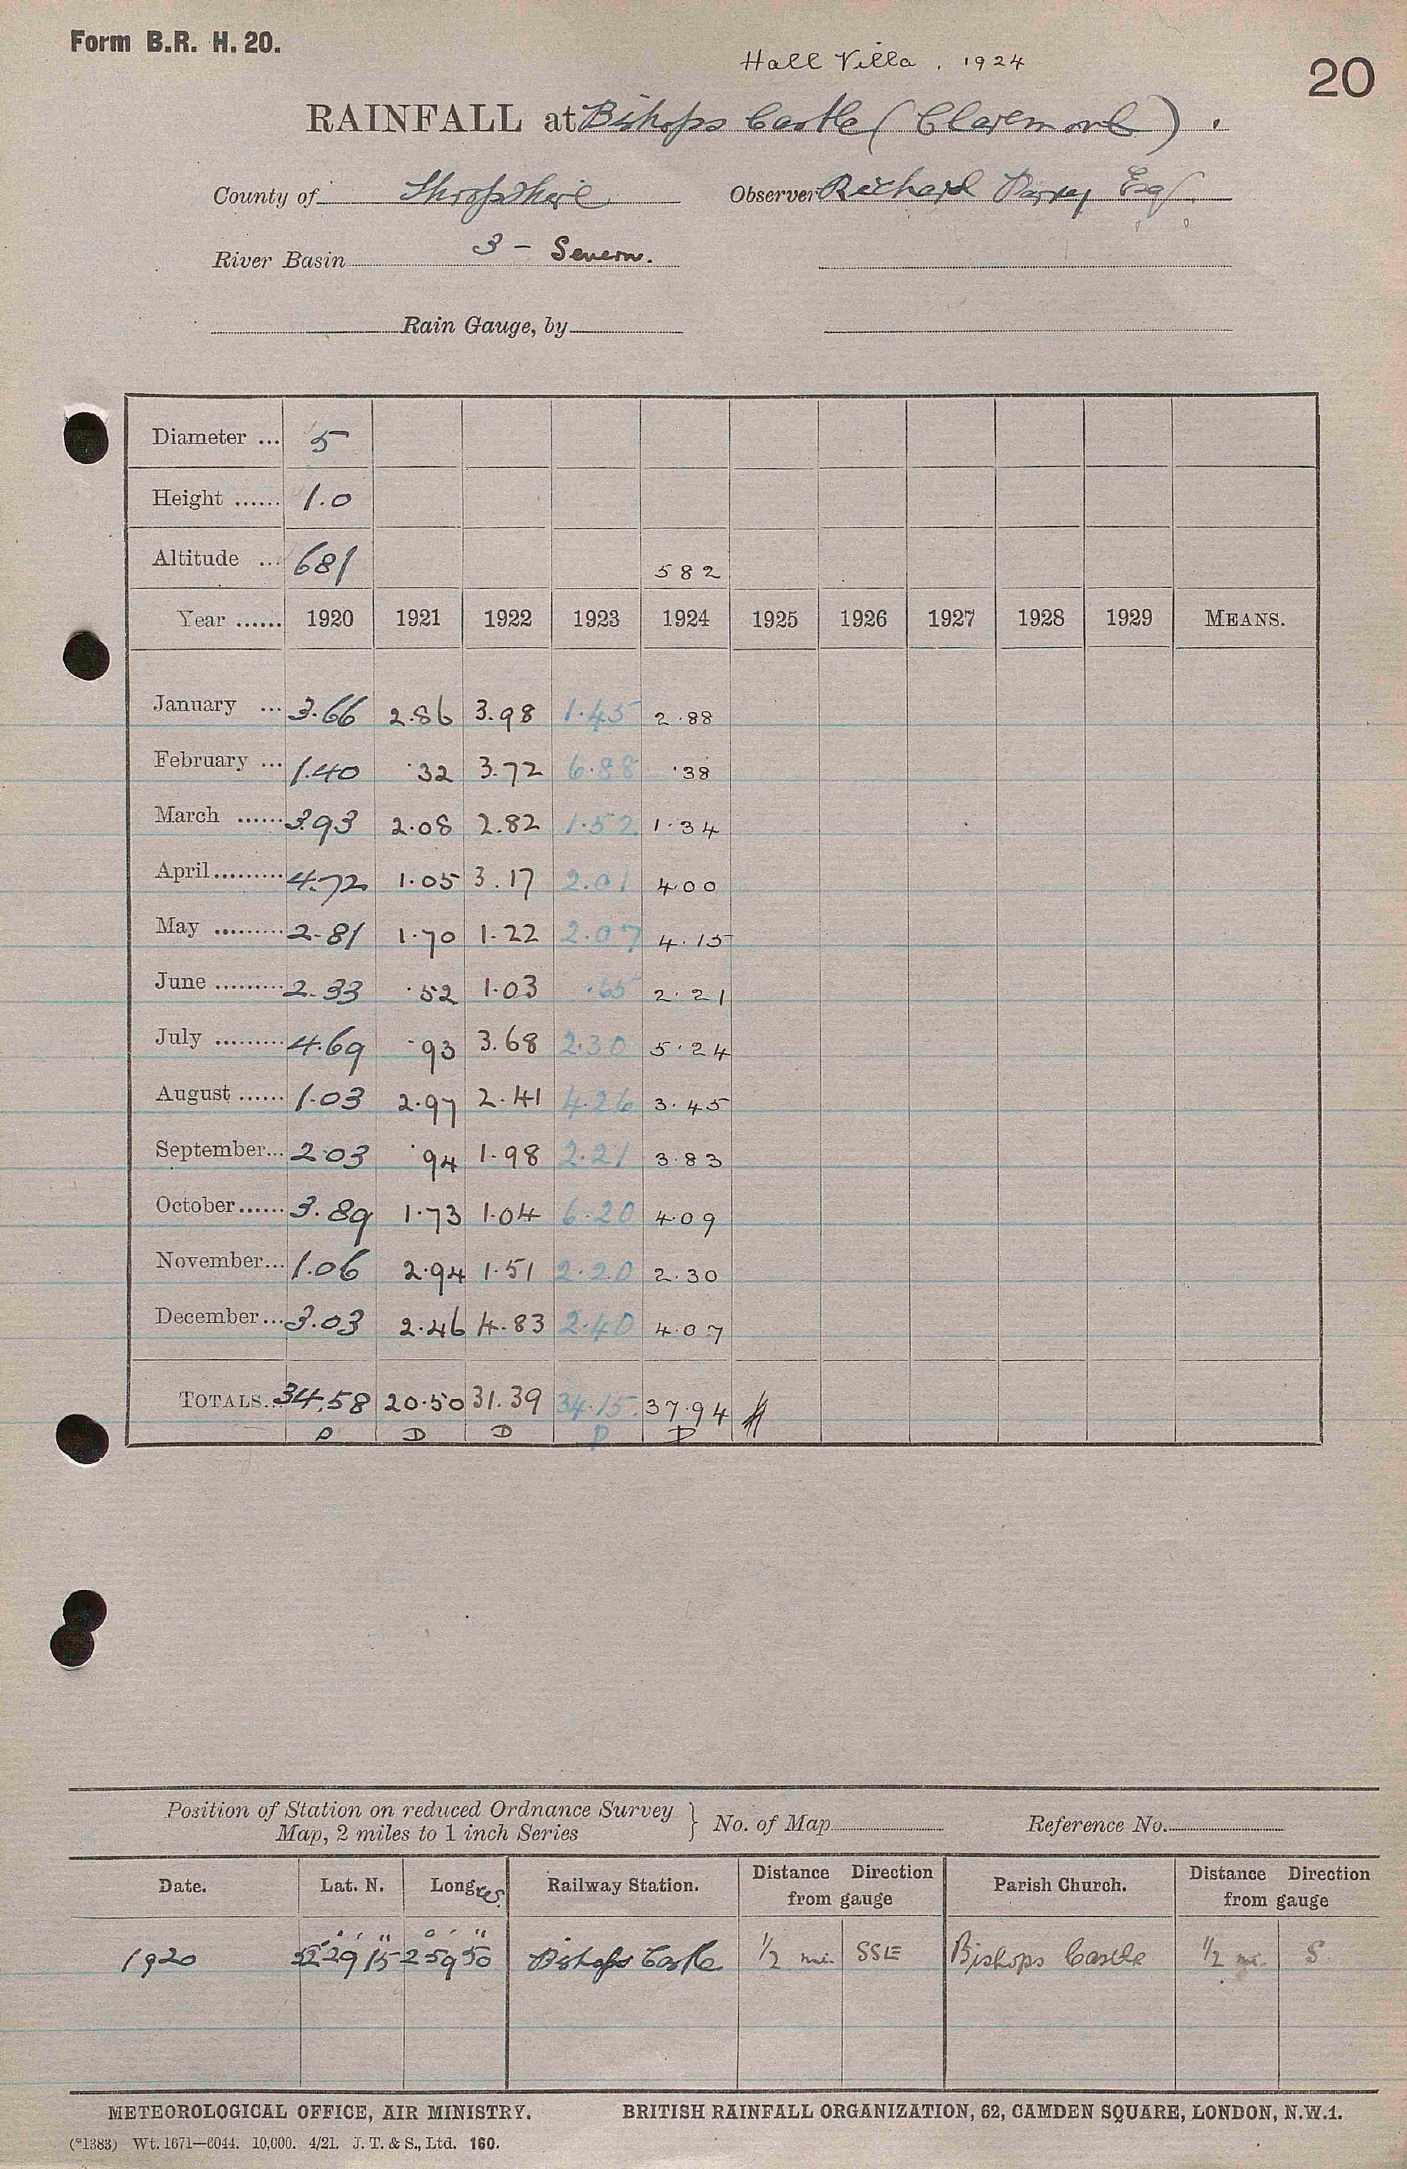 Form B.R. H. 20.
Hall Villa, 1924
20
RAINFALL at Bishops Castle (Claremont).
County of Shropshire Observer Richard Esq
River Basin 3 - Severn.
Rain Gauge, by
Diameter ... 5
Height ...... 1.0
Altitude ... 681 582
Year ...... 1920 1921 1922 1923 1924 1925 1926 1927 1928 1929 MEANS.
January ... 3.66 2.86 3.98 1.45 2.88
February ... 1.40 .32 3.72 6.88 .38
March ...... 3.93 2.08 2.82 1.52 1.34
April ......... 4.72 1.05 3.17 2.01 4.00
May ......... 2.81 1.70 1.22 2.07 4.15
June ......... 2.33 .52 1.03 .65 2.21
July ......... 4.69 .93 3.68 2.30 5.24
August ...... 1.03 2.97 2.41 4.26 3.45
September... 2.03 .94 1.98 2.21 3.83
October...... 3.89 1.73 1.04 6.20 4.09
November... 1.06 2.94 1.51 2.20 2.30
December... 3.03 2.46 4.83 2.40 4.07
TOTALS.. 34.58 20.50 31.39 34.15 37.94
D D D D D
Position of Station on reduced Ordnance Survey
Map, 2 miles to 1 inch Series } No. of Map Reference No.
Date. Lat. N. Long Railway Station. Distance Direction from gauge Parish Church. Distance Direction from gauge
1920 52° 29' 15" 2° 59' 50" Bishops Castle 1/2 mi. SSE Bishops Castle 1/2 mi. S
METEOROLOGICAL OFFICE, AIR MINISTRY. BRITISH RAINFALL ORGANIZATION, 62, CAMDEN SQUARE, LONDON, N.W.1.
(*1383) Wt. 1671—6044. 10,000. 4/21. J. T. & S., Ltd. 160.